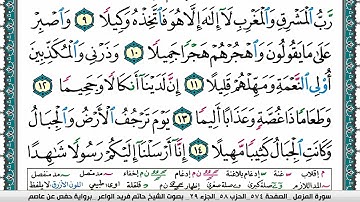 رَّبُّ ٱلْمَشْرِقِ وَٱلْمَغْرِبِ لَآ إِلَٰهَ إِلَّا هُوَ فَٱتَّخِذْهُ وَكِيلًا ٩ وَٱصْبِرْ
عَلَىٰ مَا يَقُولُونَ وَٱهْجُرْهُمْ هَجْرًا جَمِيلًا ١٠ وَذَرْنِى وَٱلْمُكَذِّبِينَ
أُو۟لِى ٱلنَّعْمَةِ وَمَهِّلْهُمْ قَلِيلًا ١١ إِنَّ لَدَيْنَآ أَنكَالًا وَجَحِيمًا ١٢
وَطَعَامًا ذَا غُصَّةٍ وَعَذَابًا أَلِيمًا ١٣ يَوْمَ تَرْجُفُ ٱلْأَرْضُ وَٱلْجِبَالُ
وَكَانَتِ ٱلْجِبَالُ كَثِيبًا مَّهِيلًا ١٤ إِنَّآ أَرْسَلْنَآ إِلَيْكُمْ رَسُولًا شَٰهِدًا
سورة المزمل الصفحة ٥٧٤ الحزب ٥٨ الجزء ٢٩ بصوت الشيخ حاتم فريد الواعر برواية حفص عن عاصم